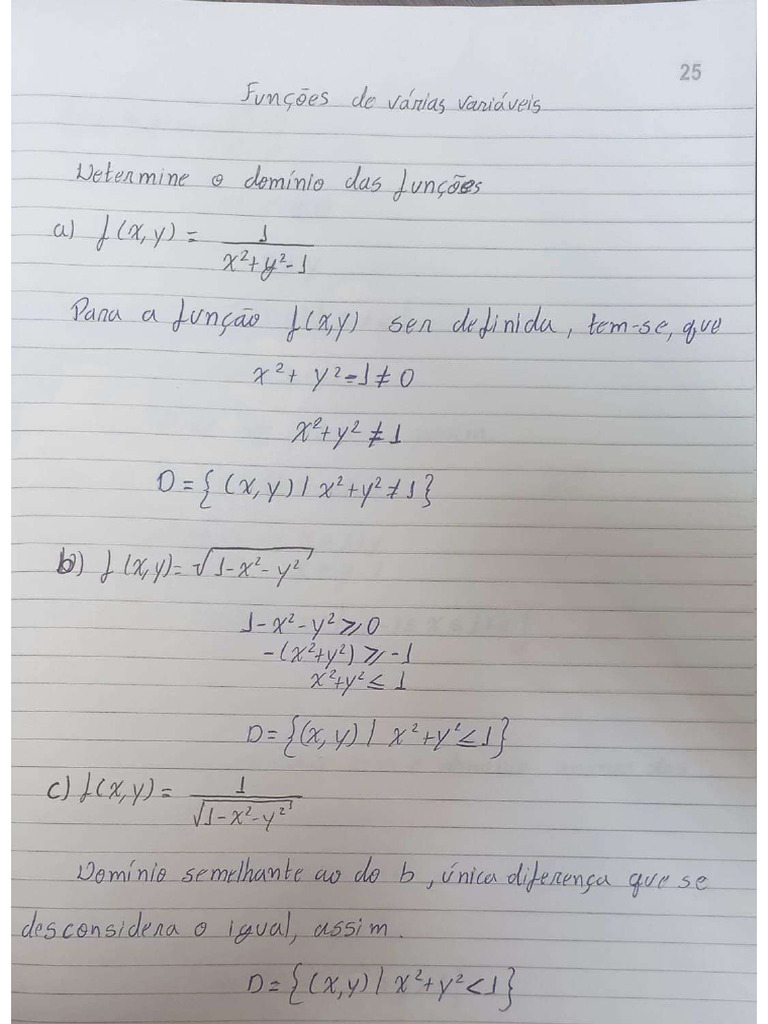 25
Funções de várias variáveis
Determine o domínio das funções
a) f(x,y) = 1 / x²+y²-1
Para a função f(x,y) ser definida, tem-se, que
x²+ y²-1≠0
x²+y² ≠ 1
D = { (x,y) / x²+y² ≠ 1}
b) f(x,y) = √1-x²-y²
1-x²-y² ⩾ 0
-(x²+y²) ⩾ -1
x²+y² ≤ 1
D = {(x,y) / x²+y² ≤ 1}
c) f(x,y) = 1 / √1-x²-y²
Domínio semelhante ao do b, única diferença que se
desconsidera o igual, assim.
D = {(x,y) / x²+y² < 1}